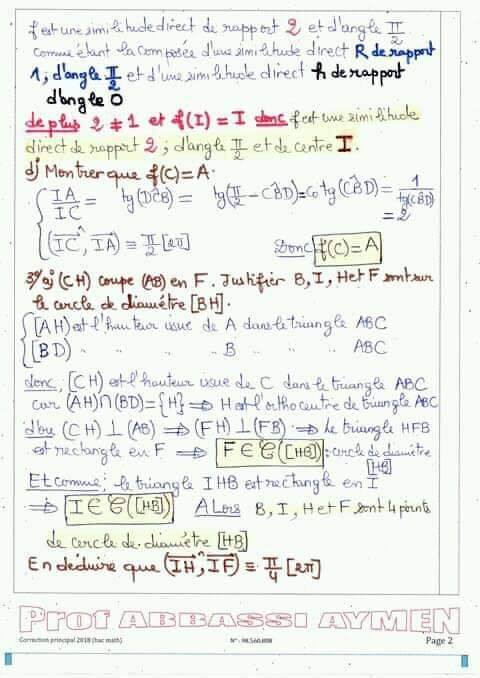 f est une similitude direct de rapport 2 et d'angle π/2
comme étant la composée d'une similitude direct R de rapport
1 ; d'angle π/2 et d'une similitude direct h de rapport
d'angle 0
de plus 2 ≠ 1 et f(I) = I donc f est une similitude
direct de rapport 2 ; d'angle π/2 et de centre I.
d) Montrer que f(C) = A.
{ IA/IC = tg(DĈB) = tg(π/2 - CB̂D) = cotg(CB̂D) = 1/tg(CB̂D)
= 2
(IC→ ^, IA→) ≡ π/2 [2π] Donc f(C) = A
3°/a) (CH) coupe (AB) en F. Justifier B, I, H et F sont sur
le cercle de diamétre [BH].
{ [AH) est l'hauteur issue de A dans le triangle ABC
[BD) " " " B " " ABC
donc, [CH) est l'hauteur issue de C dans le triangle ABC
car (AH)∩(BD) = {H} ⇒ H est l'orthocentre de triangle ABC
d'ou (CH) ⊥ (AB) ⇒ (FH) ⊥ (FB) ⇒ le triangle HFB
est rectangle en F ⇒ F ∈ 𝒞([HB]) : cercle de diamétre
[HB]
Et comme : le triangle IHB est rectangle en I
⇒ I ∈ 𝒞([HB]) Alors B, I, H et F sont 4 points
de cercle de diamétre [HB]
En déduire que (IH→ ^, IF→) ≡ π/4 [2π]
Prof ABBASSI AYMEN
Correction principal 2018 (bac math) N° : 98.560.808 Page 2